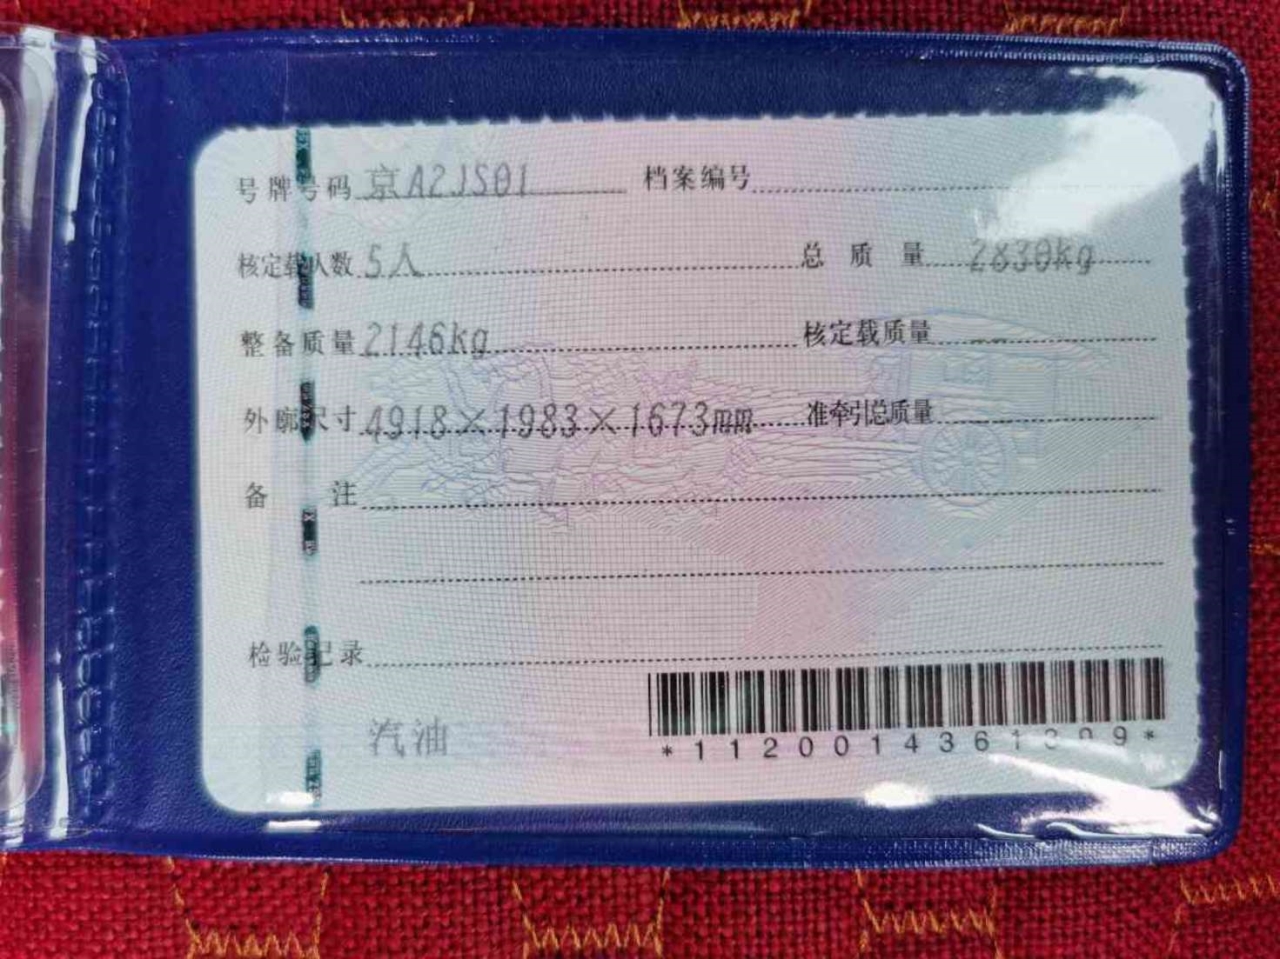 号牌号码 京A2JS01 档案编号
核定载人数 5人 总质量 2830kg
整备质量 2146kg 核定载质量 --
外廓尺寸 4918×1983×1673mm 准牵引总质量 --
备注
检验记录
汽油
*1120014361309*